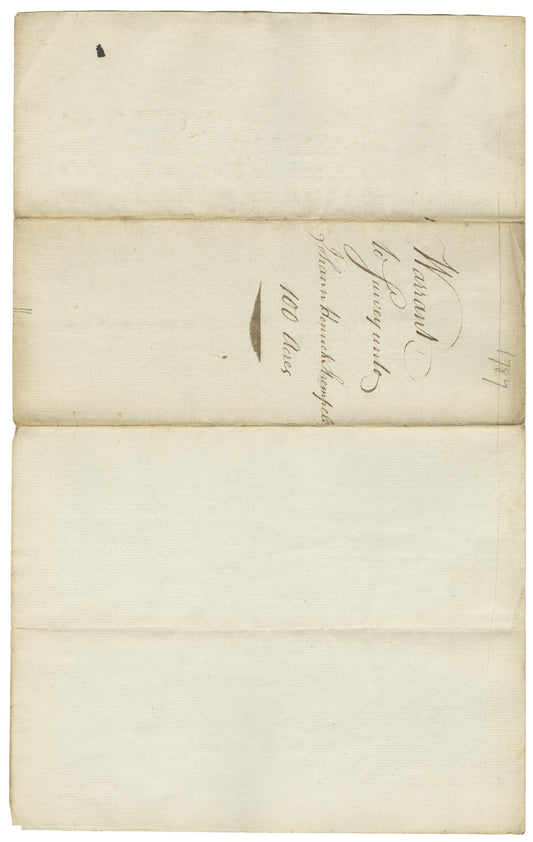 1789
Warrant
to Survey unto
Johann Henrich
100 Acres